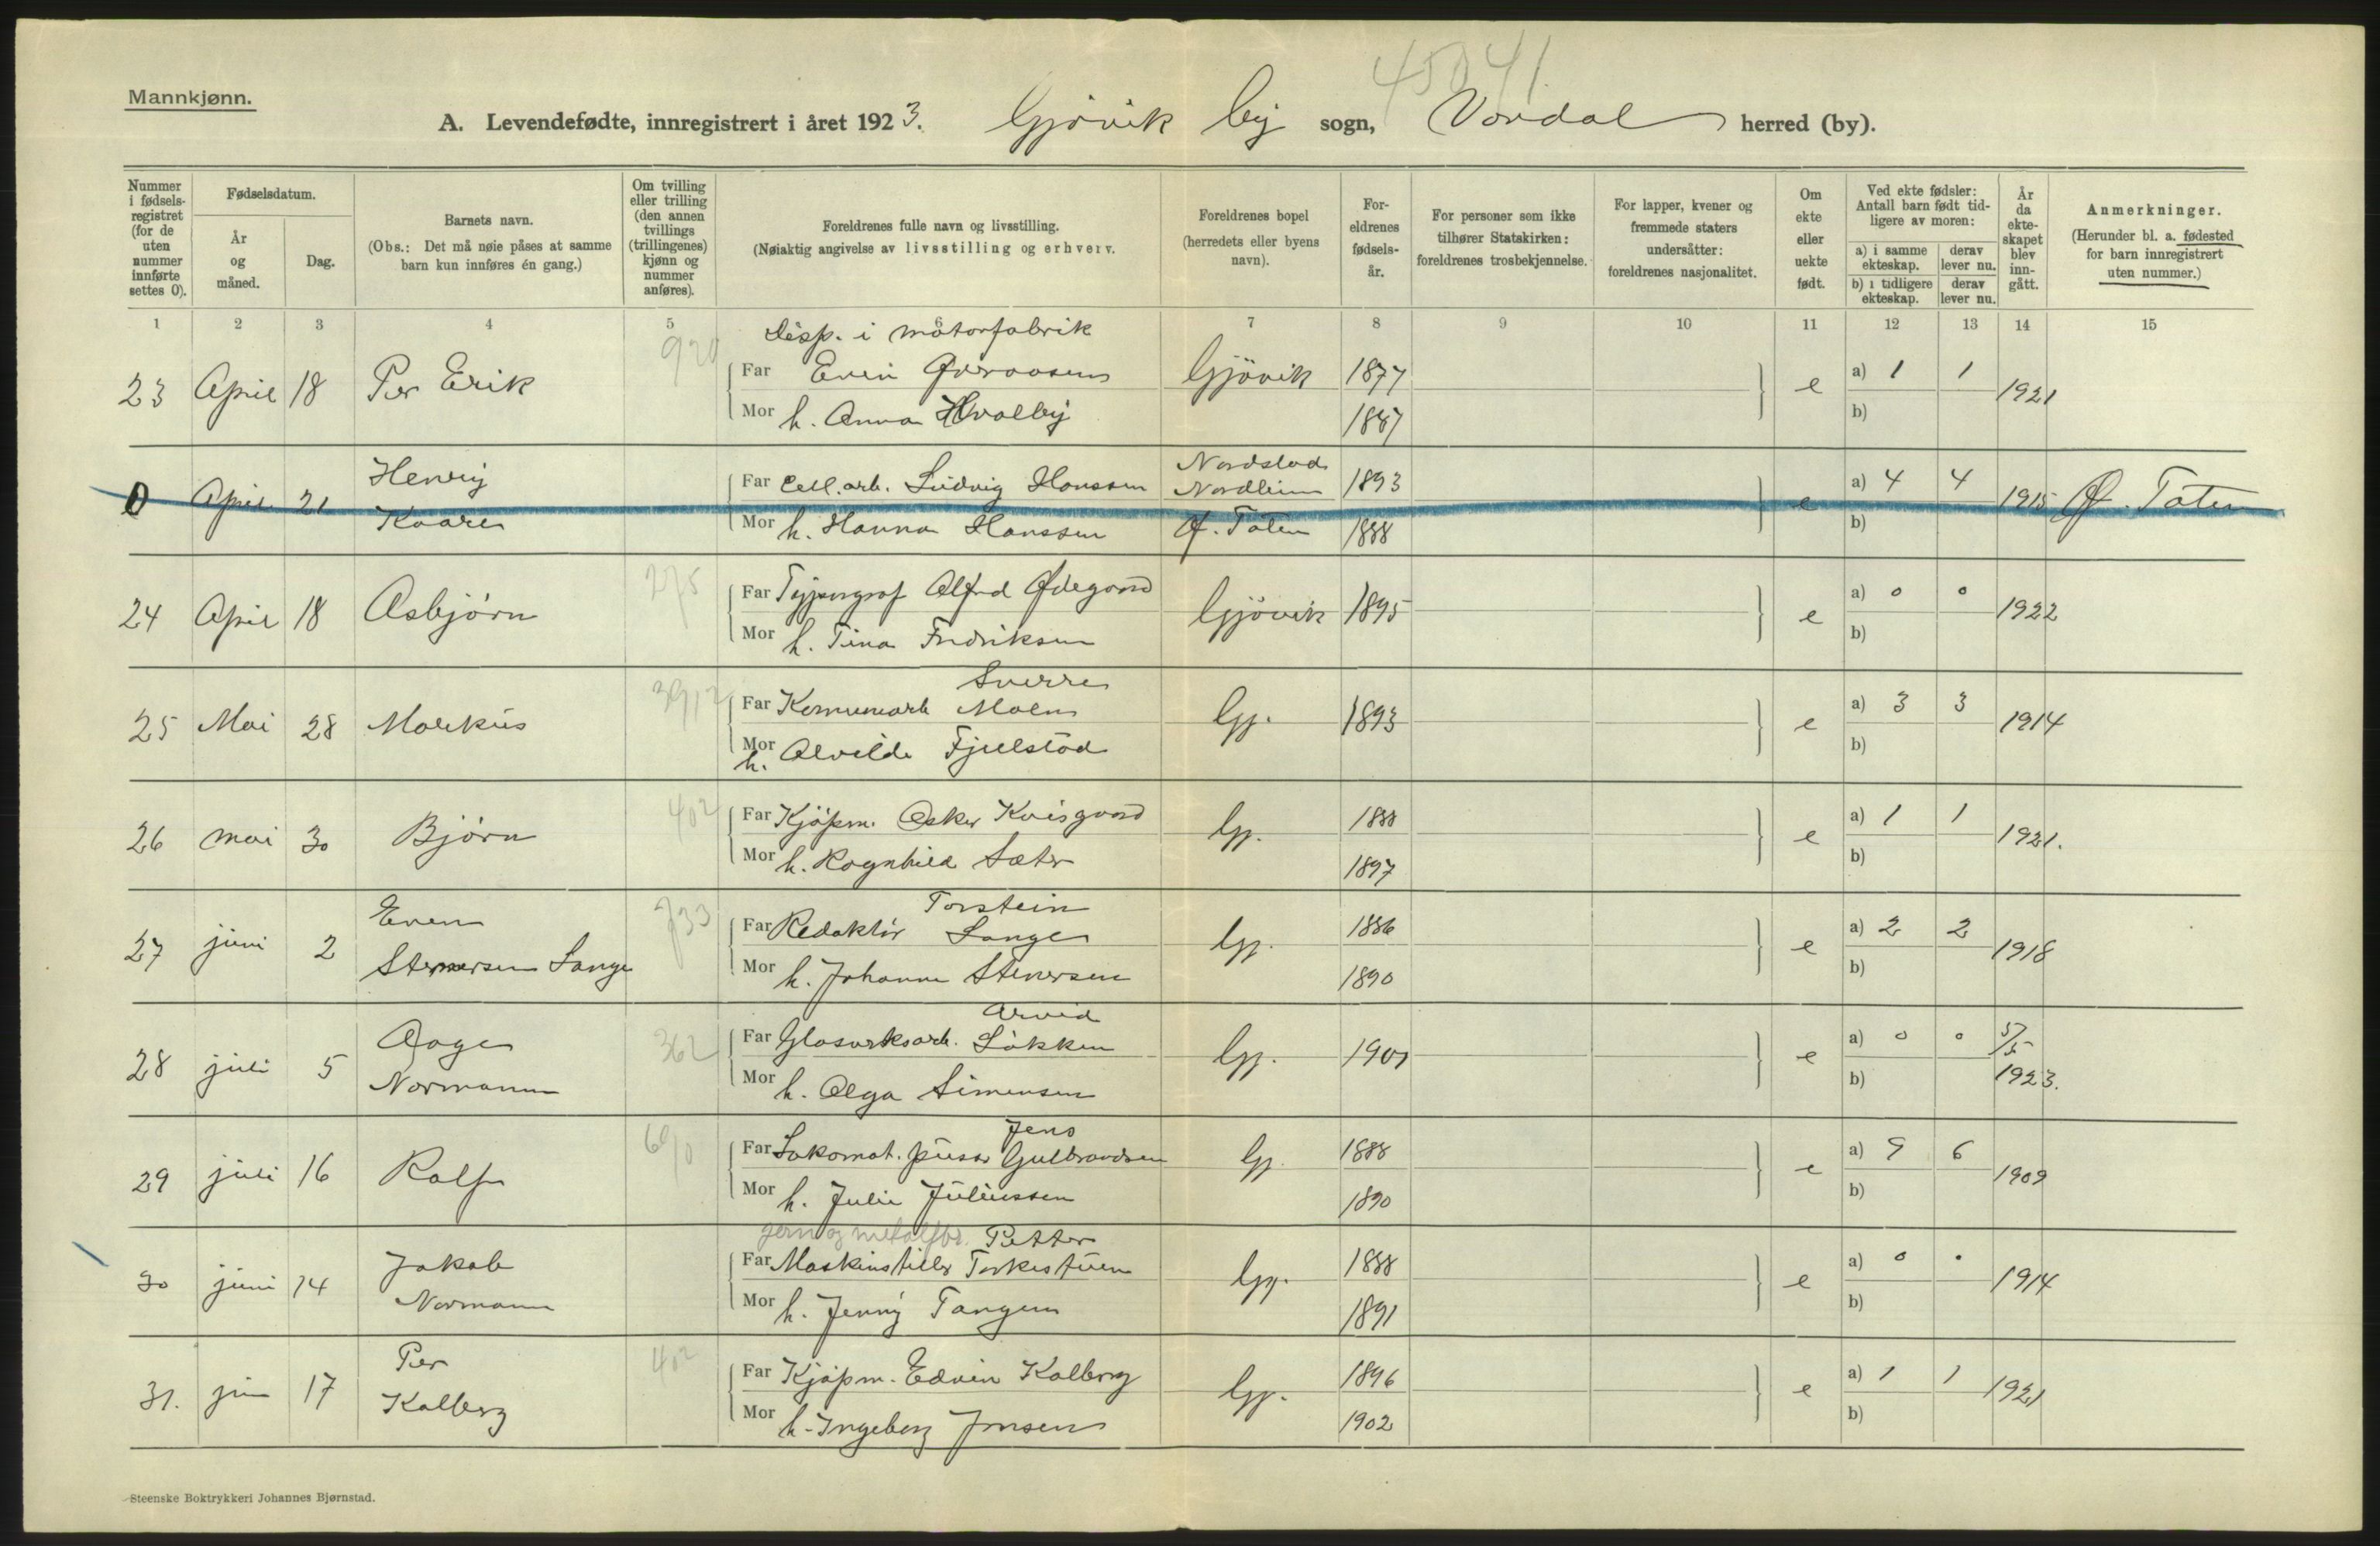 45041.
Mannkjønn.
A. Levendefødte, innregistrert i året 1923. Gjøvik by sogn, Vardal herred (by).
Nummer i fødselsregistret (for de uten nummer innførte settes 0).
Fødselsdatum.
År og måned.
Dag.
Barnets navn.
(Obs.: Det må nøie påses at samme barn kun innføres én gang.)
Om tvilling eller trilling (den annen tvillings (trillingenes) kjønn og nummer anføres).
Foreldrenes fulle navn og livsstilling.
(Nøiaktig angivelse av livsstilling og erhverv.
Foreldrenes bopel (herredets eller byens navn).
Foreldrenes fødselsår.
For personer som ikke tilhører Statskirken: foreldrenes trosbekjennelse.
For lapper, kvener og fremmede staters undersåtter: foreldrenes nasjonalitet.
Om ekte eller uekte født.
Ved ekte fødsler: Antall barn født tidligere av moren:
a) i samme ekteskap.
derav lever nu.
b) i tidligere ekteskap.
derav lever nu.
År da ekteskapet blev inngått.
Anmerkninger.
(Herunder bl. a. fødested for barn innregistrert uten nummer.)
1 2 3 4 5 6 7 8 9 10 11 12 13 14 15
Disp. i motorfabrik
23 April 18 Per Erik 920 Far Even Gjøvik 1877 e a) 1 1 1921
Mor h. Anna Hvalby 1887 b)
0 April 21 Henry Kaare Far Cell.arb. Ludvig Hanssen Nordstad Nordlien 1893 e a) 4 4 1915 Ø. Toten
Mor h. Hanna Hanssen Ø. Toten 1888 b)
24 April 18 Asbjørn 275 Far Typograf Alfred Ødegaard Gjøvik 1895 e a) 0 0 1922
Mor h. Tina Fredriksen b)
Sverre
25 Mai 28 Markus Far Kommunearb Moen Gj. 1893 e a) 3 3 1914
Mor h. Alvilde Fjellstad b)
26 mai 30 Bjørn 402 Far Kjøpm. Oskar Kvisgaard Gj. 1888 e a) 1 1 1921.
Mor h. Ragnhild Sæter 1897 b)
Torstein
27 juni 2 Even Stenersen Lange 733 Far Redaktør Lange Gj. 1886 e a) 2 2 1918
Mor h. Johanne Stenersen 1890 b)
Arvid
28 juli 5 Aage Normann 362 Far Glasverksarb. Løkken Gj. 1901 e a) 0 0 5/5 1923.
Mor h. Olga Simensen b)
Jens
29 juli 16 Ralf 690 Far Lokomot. pusser Gulbrandsen Gj. 1888 e a) 9 6 1909
Mor h. Julie Juliussen 1890 b)
jern og metalfbr. Petter
30 juni 14 Jakob Normann Far Maskinstiller Gj. 1888 e a) 0 0 1914
Mor h. Jenny Tangen 1891 b)
31. juni 17 Per Kalberg 402 Far Kjøpm. Edvin Kalberg Gj. 1896 e a) 1 1 1921
Mor h. Ingeborg Jensen 1902 b)
Steenske Boktrykkeri Johannes Bjørnstad.